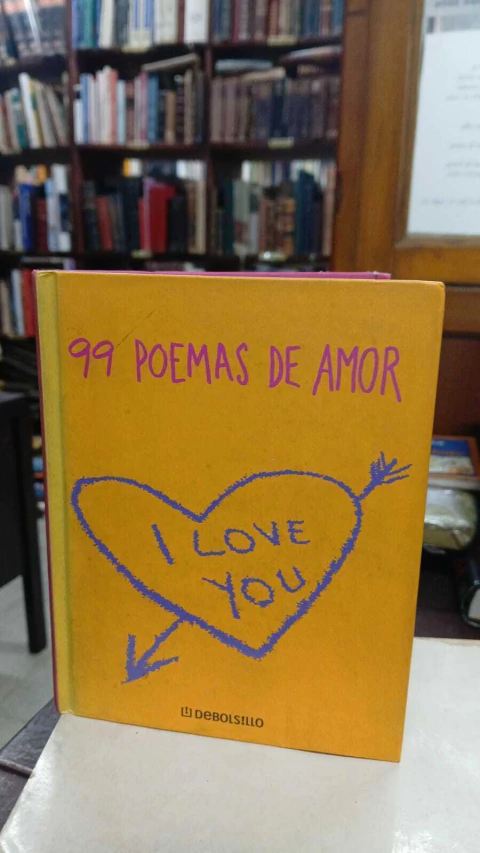 99 POEMAS DE AMOR
I LOVE
YOU
DEBOLS!LLO